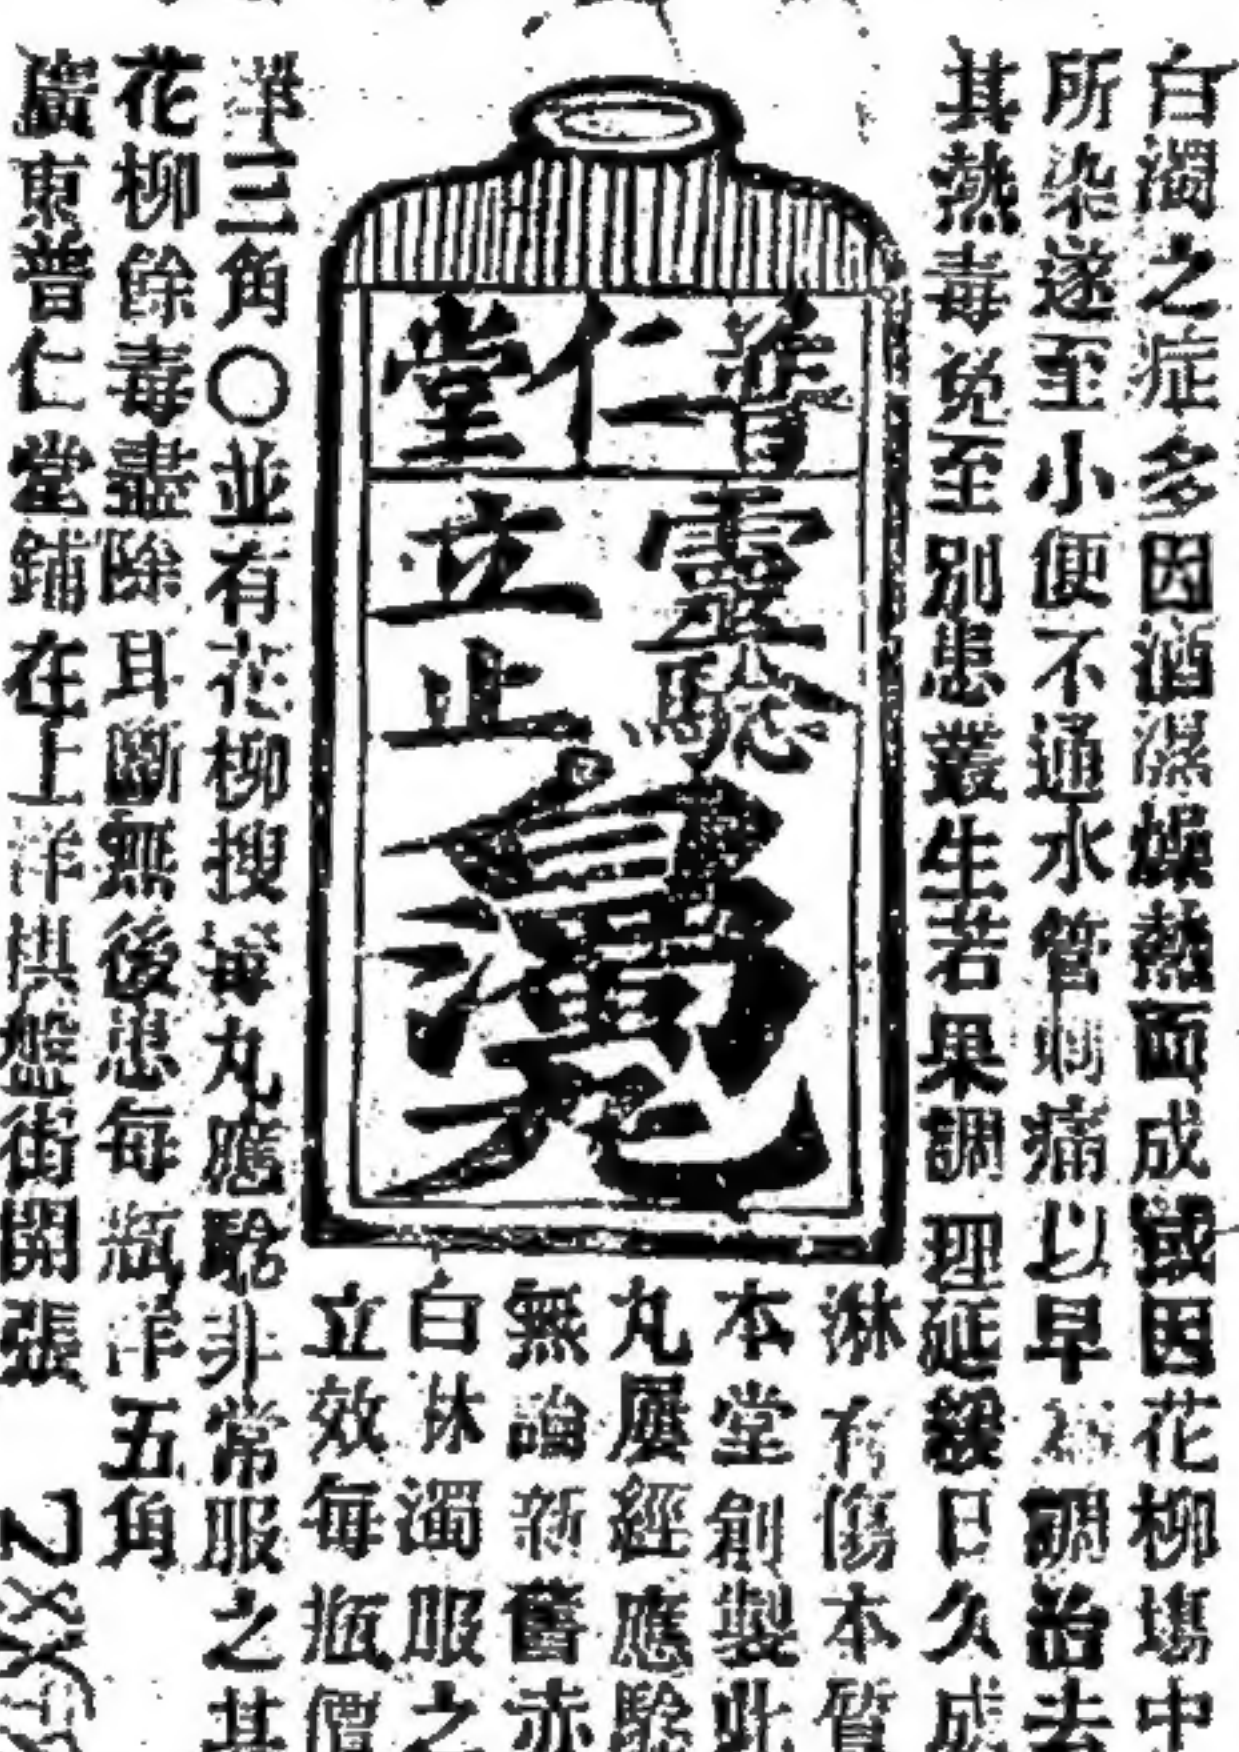 白濁之症多因酒濕燥熱而成或因花柳塲中
所染遂至小便不通水管刺痛以早調治去
其熱毒免至別患叢生若果調理延緩日久成
淋有傷本質
本堂創製此
丸屢經應驗
無論新舊赤
白淋濁服之
立效每瓶價
普仁堂
靈驗
立止
白濁丸
洋三角〇並有花柳搜毒丸應驗非常服之其
花柳餘毒盡除耳斷無後患每瓶洋五角
廣東普仁堂鋪在上洋棋盤街開張